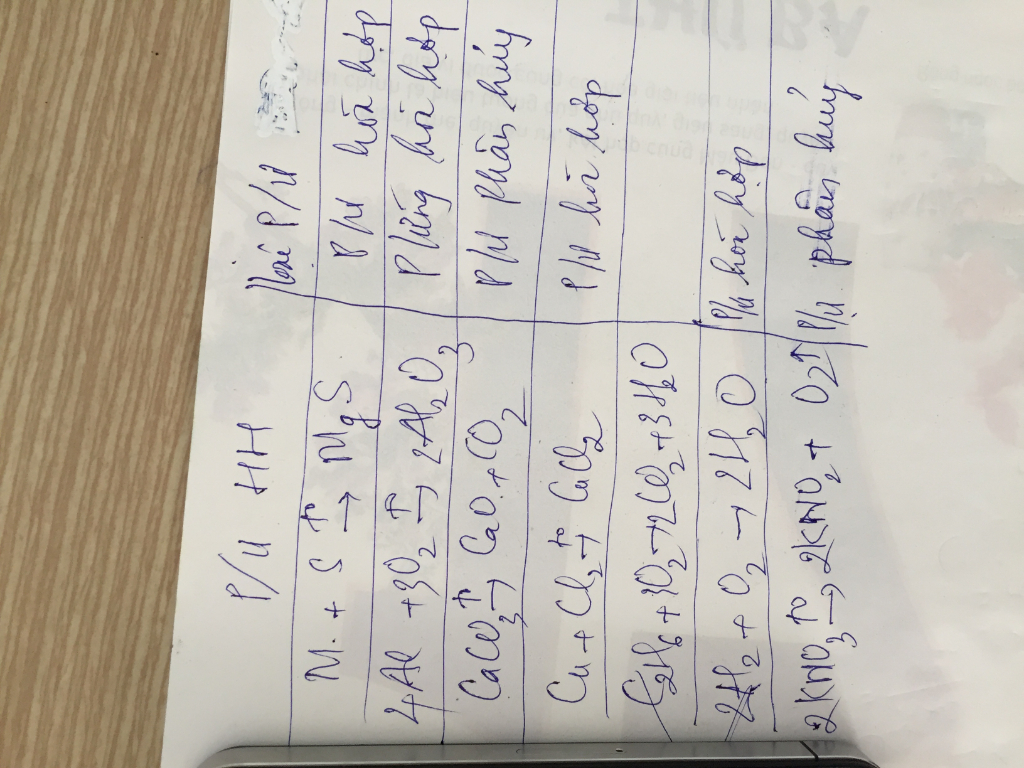 P/Ư HH Loại P/Ư
M. + S t° → MgS P/Ư hoá hợp
4Al + 3O2 t° → 2Al2O3 P/ứng hoá hợp
CaCO3 t° → CaO + CO2 P/Ư Phân hủy
Cu + Cl2 t° → CuCl2 P/Ư hoá hợp
C2H6 + 3O2 → 2CO2 + 3H2O
2H2 + O2 → 2H2O P/Ư hoá hợp
2KNO3 t° → 2KNO2 + O2↑ P/Ư phân hủy